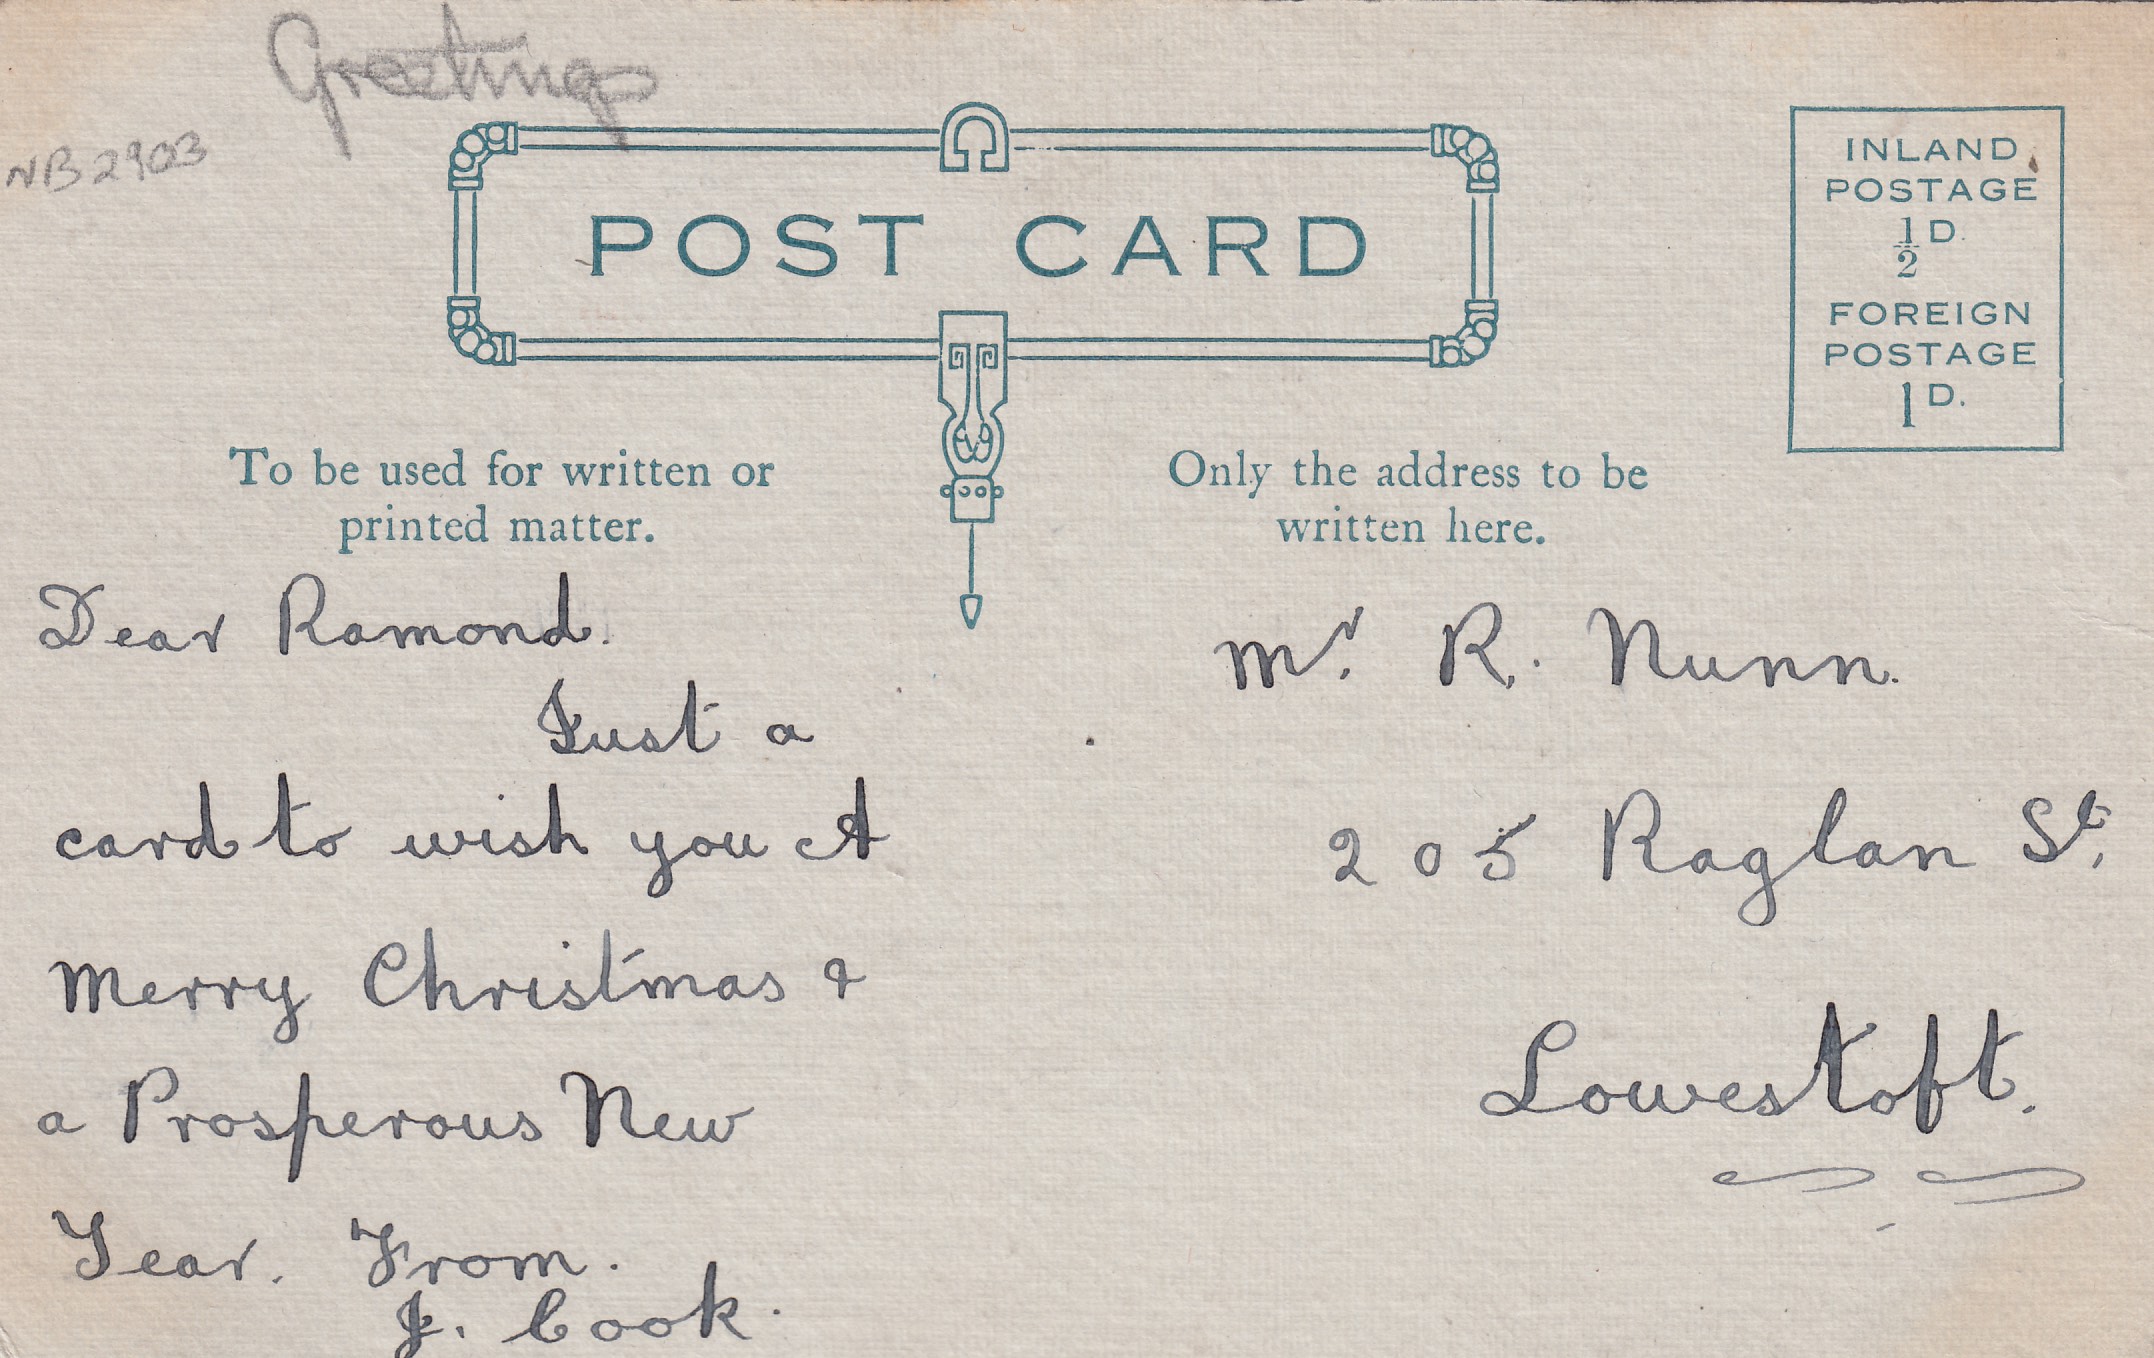 Greetings
NB2903
POST CARD
INLAND
POSTAGE
½D.
FOREIGN
POSTAGE
1D.
To be used for written or
printed matter.
Only the address to be
written here.
Dear Ramond.
Just a
card to wish you A
Merry Christmas &
a Prosperous New
Year. From.
J. Cook.
Mr. R. Nunn.
205 Raglan St.
Lowestoft.